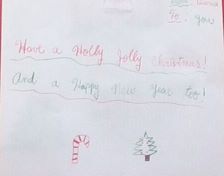 To you
Have a Holly Jolly Christmas!
And a Happy New Year too!